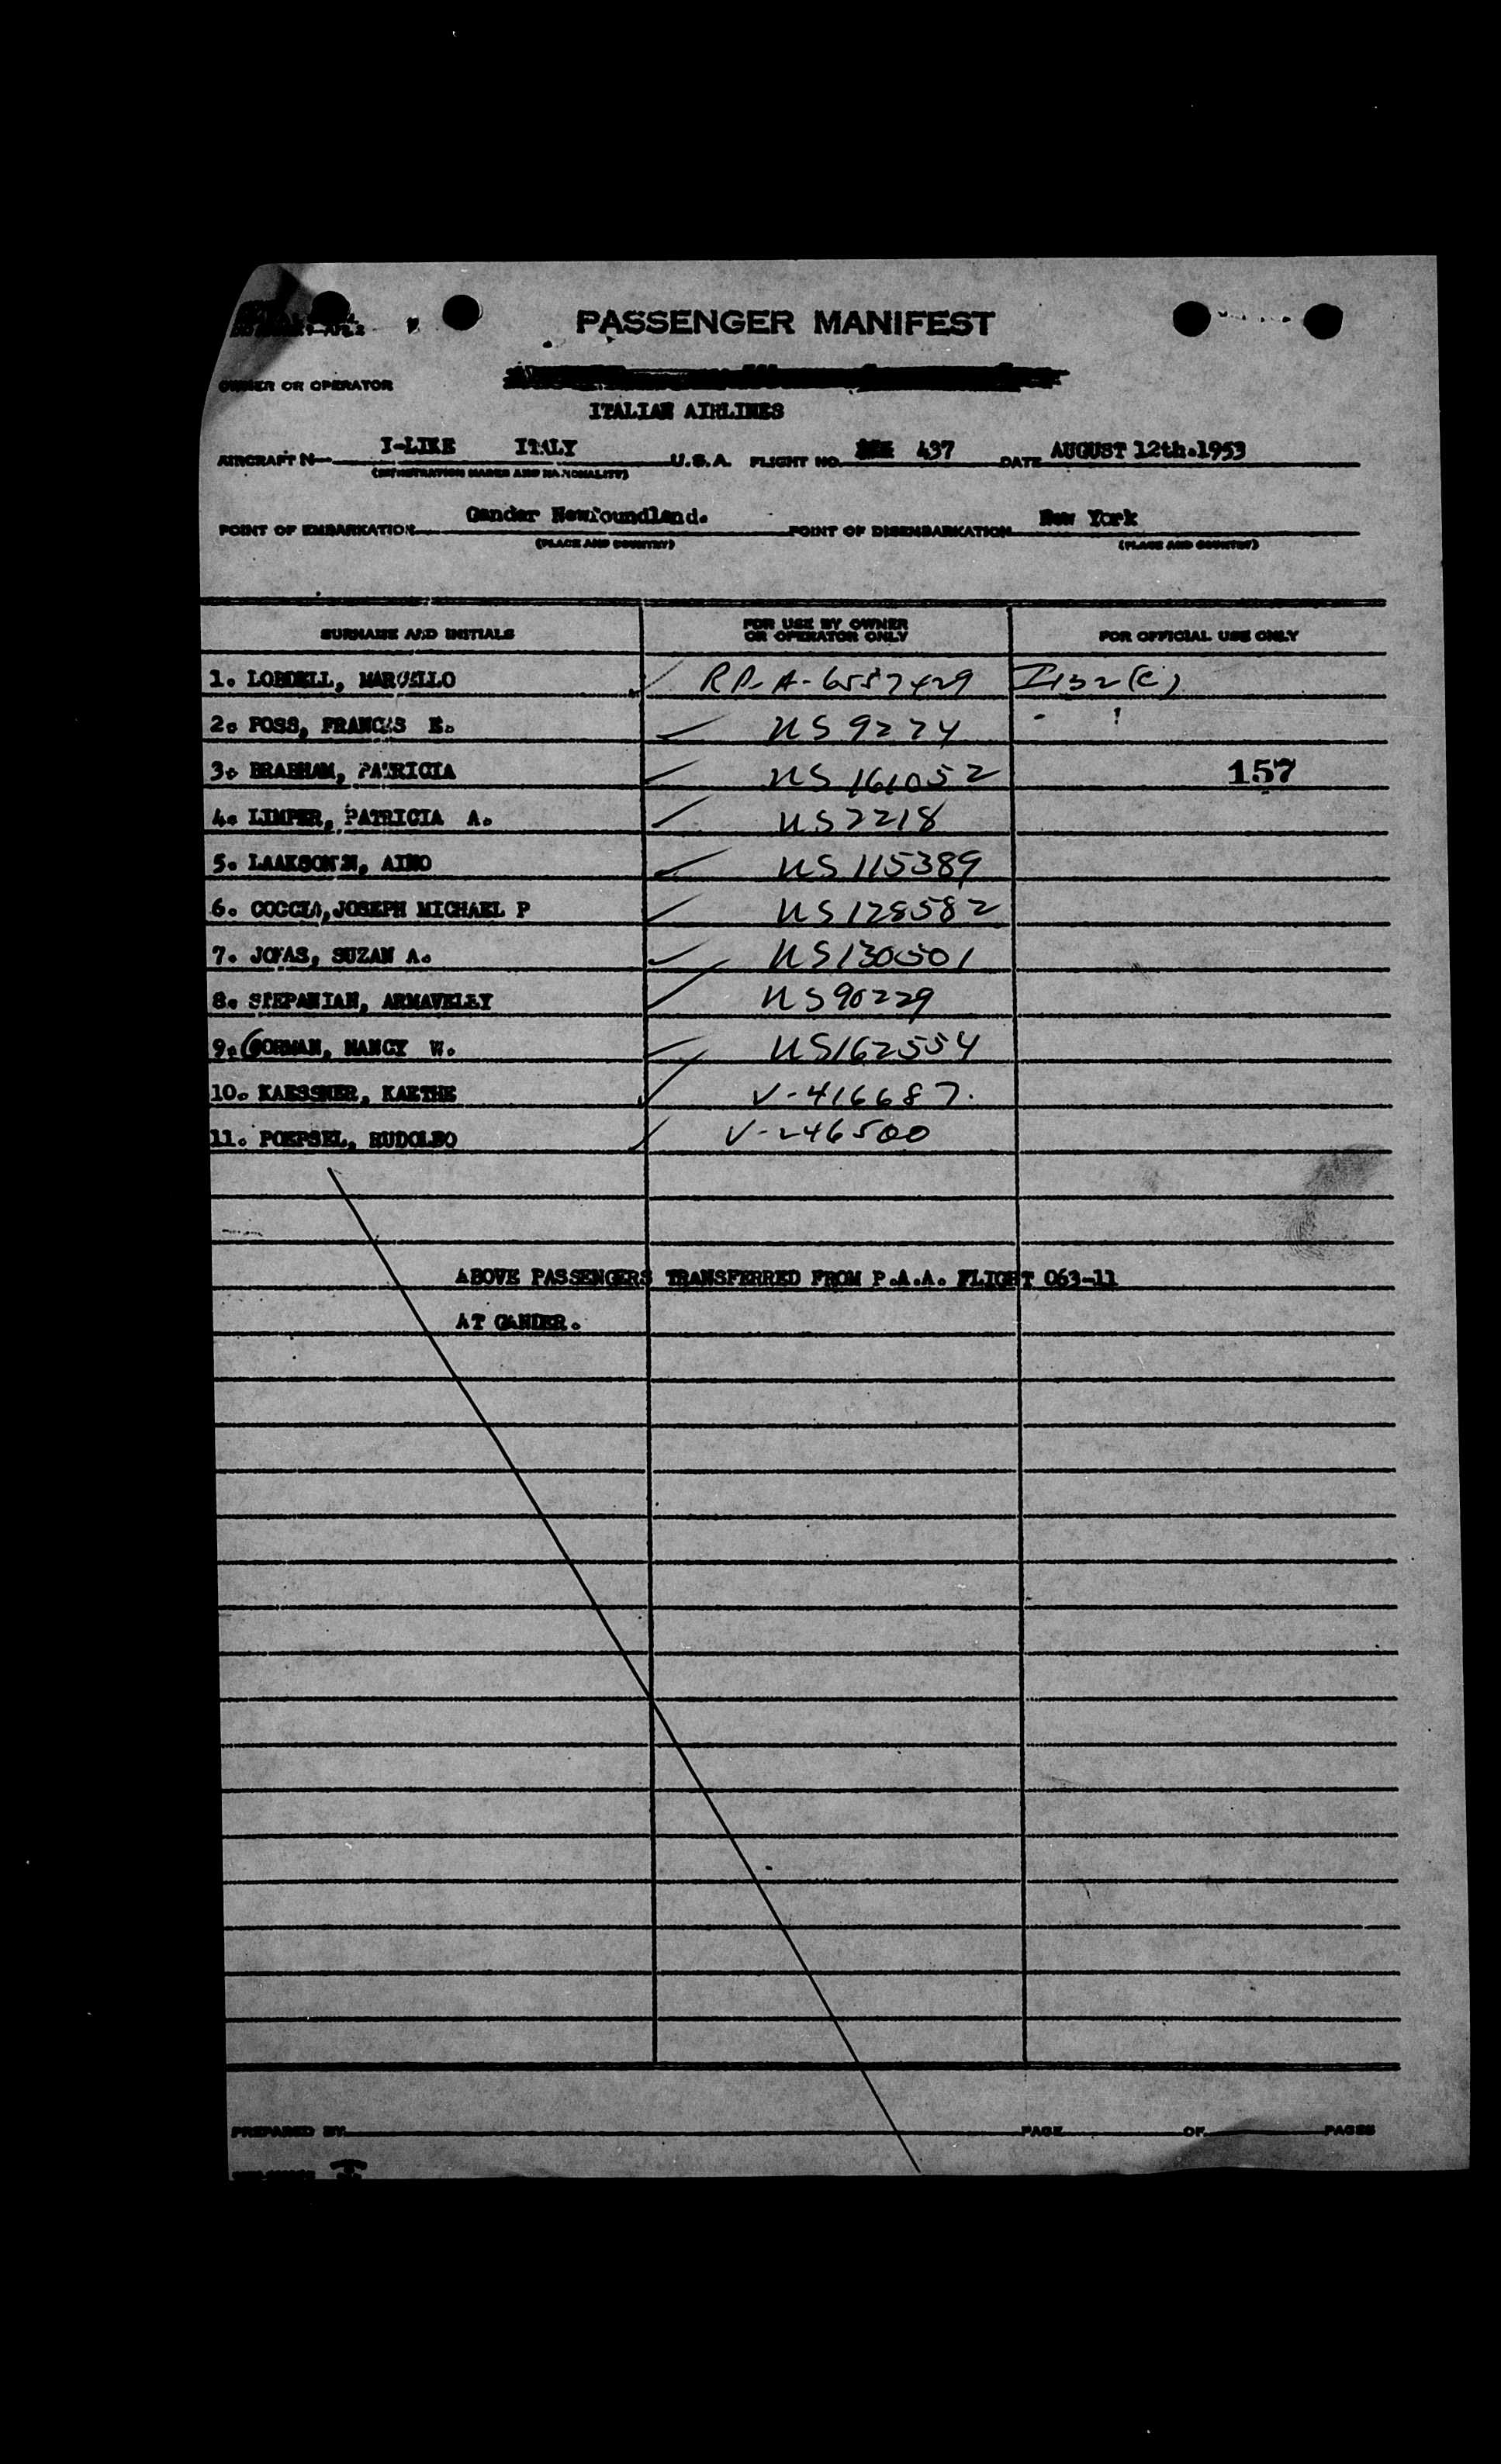 PASSENGER MANIFEST
OWNER OR OPERATOR
ITALIAN AIRLINES
AIRCRAFT N— I-LIKE ITALY U.S.A. FLIGHT NO. 437 DATE AUGUST 12th.1953
(REGISTRATION MARKS AND NATIONALITY)
POINT OF EMBARKATION Gander Newfoundland. POINT OF DISEMBARKATION New York
(PLACE AND COUNTRY) (PLACE AND COUNTRY)
SURNAME AND INITIALS FOR USE BY OWNER OR OPERATOR ONLY FOR OFFICIAL USE ONLY
1. LOBDELL, MARCELLO A-6557429
2. FOSS, FRANCIS E. US 9274
3. BRABHAM, PATRICIA US 161052 157
4. LIMPER, PATRICIA A. US 2218
5. LAAKSONEN, AINO US 115389
6. COCCIA, JOSEPH MICHAEL P US 128582
7. SUZAN A. US 130501
8. STEPANIAN, US 90229
9. GORMAN, NANCY W. US 162554
10. KAESSNER, KAETHE V-416687.
11. POEPSEL, V-246500
ABOVE PASSENGERS TRANSFERRED FROM P.A.A. FLIGHT 063-11
AT GANDER.
PREPARED BY PAGE OF PAGES